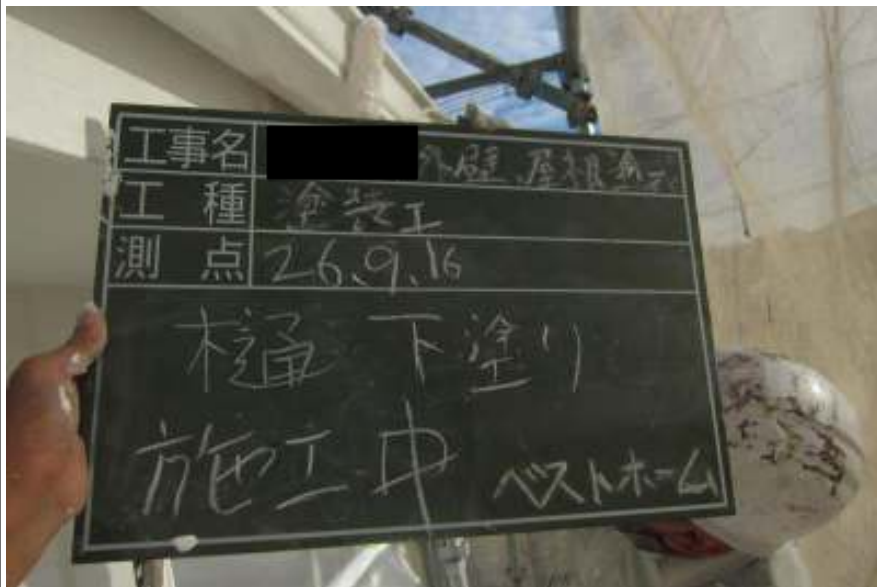 工事名 外壁、屋根塗装
工種 塗装工
測点 26.9.16
樋 下塗り
施工中 ベストホーム